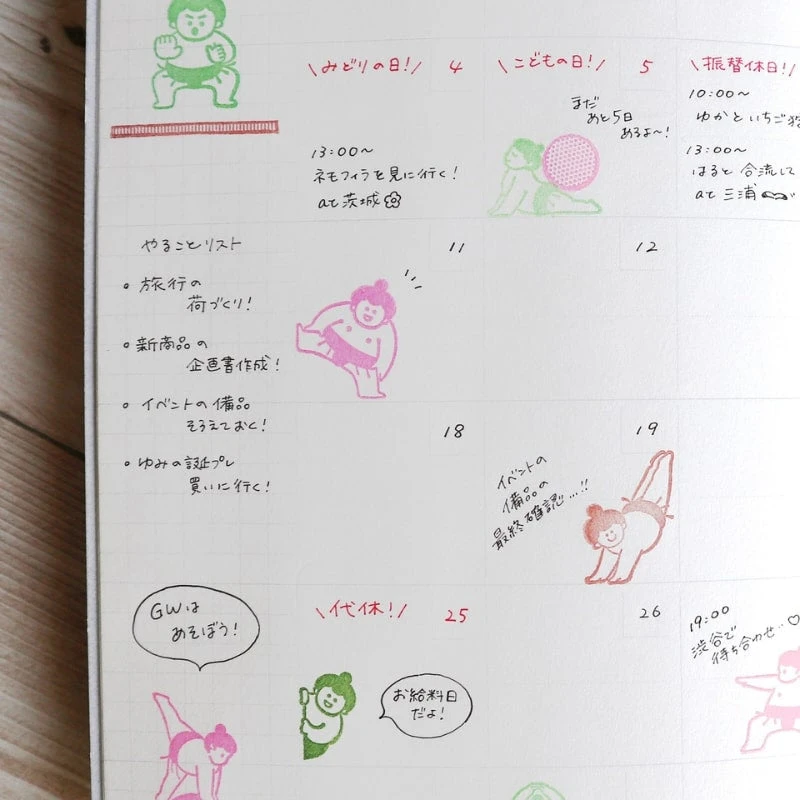 \みどりの日!/ 4
\こどもの日!/ 5
\振替休日!/
まだ
あと5日
あるよ〜!
10:00〜
ゆかといちご
13:00〜
ネモフィラを見に行く!
at 茨城
13:00〜
はると 合流して
at 三浦
やることリスト
11
12
• 旅行の
荷づくり!
• 新商品の
企画書作成!
• イベントの備品
そろえておく!
• ゆみの誕プレ
買いに行く!
18
19
イベントの
備品の
最終確認…!!
GWは
あそぼう!
\代休!/ 25
26
お給料日
だよ!
19:00
渋谷で
待ち合わせ‥♡